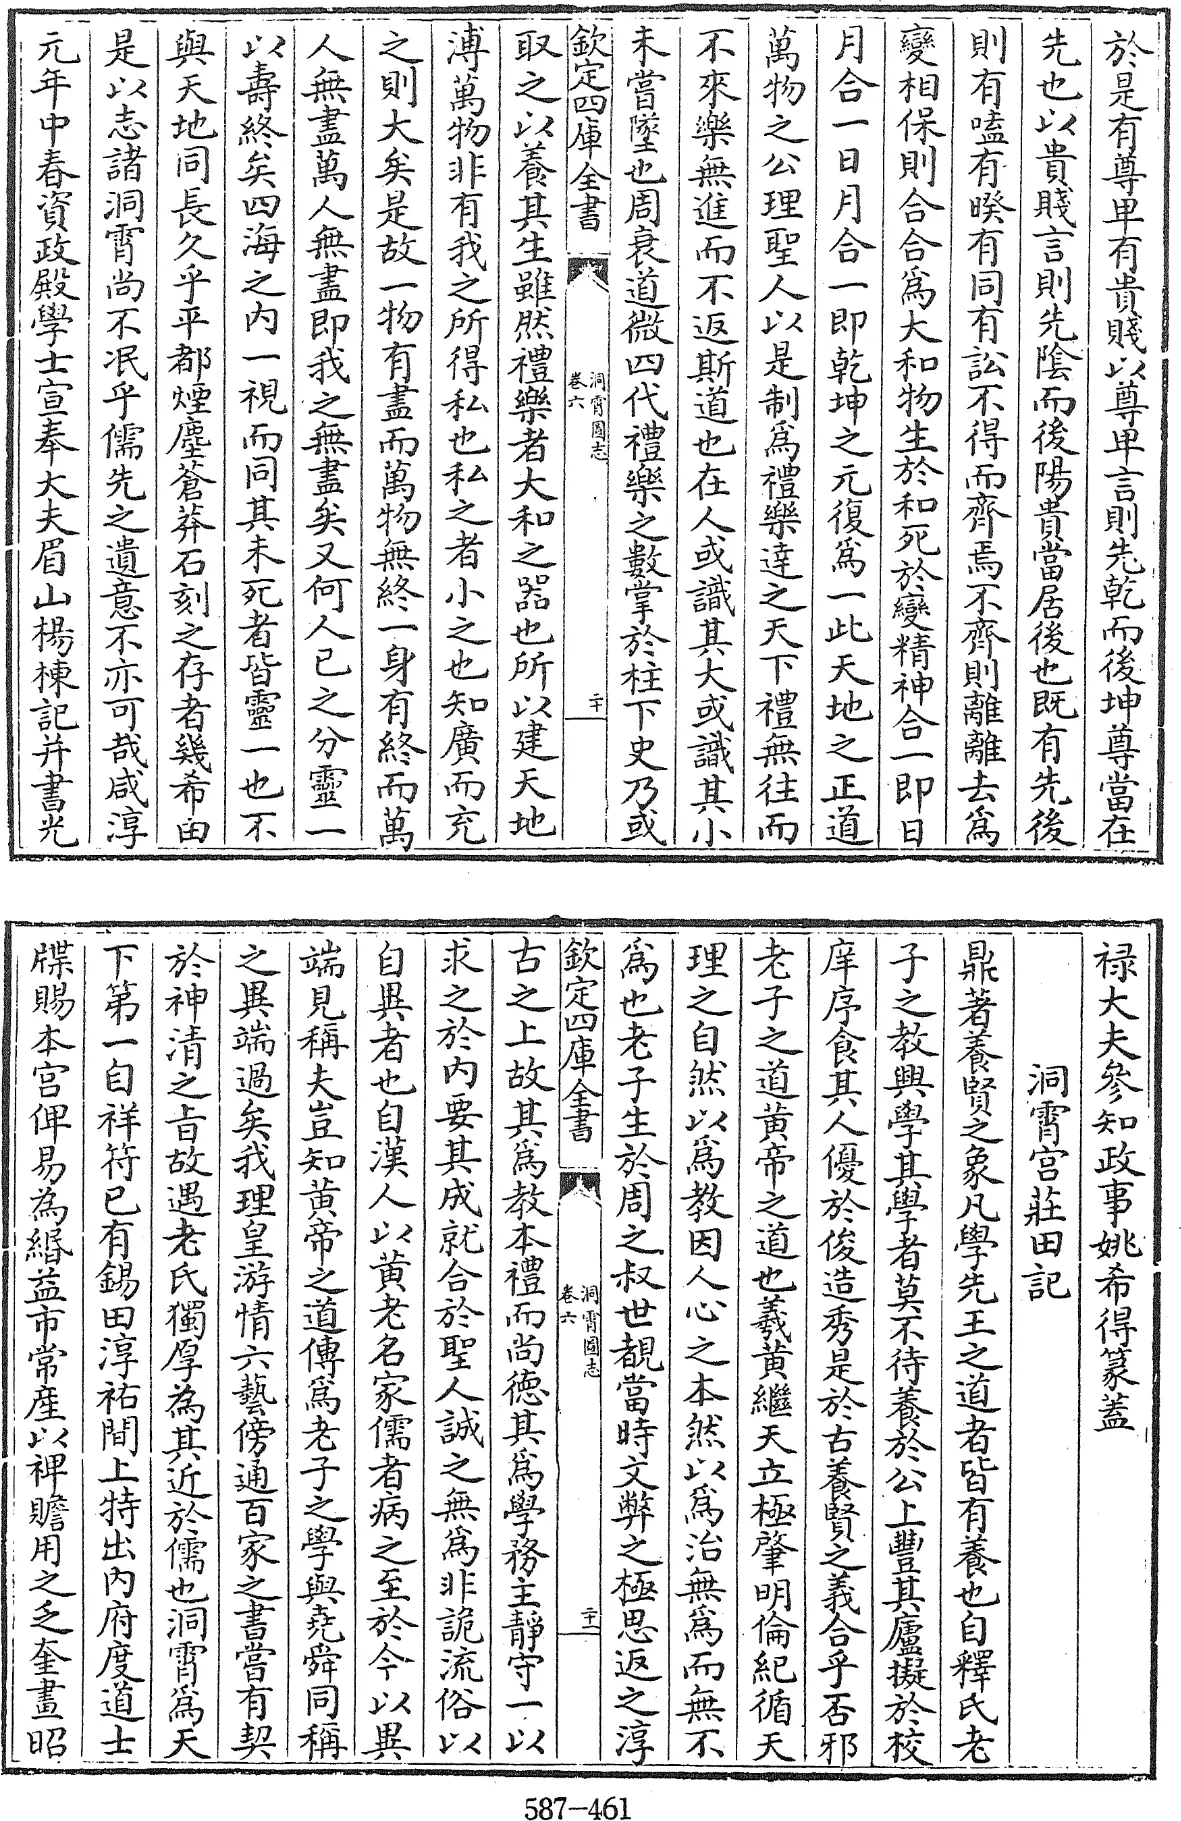 於是有尊卑有貴賤以尊卑言則先乾而後坤尊當在
先也以貴賤言則先陰而後陽貴當居後也既有先後
則有嗑有睽有同有訟不得而齊焉不齊則離離去為
變相保則合合爲大和物生於和死於變精神合一即日
月合一日月合一即乾坤之元復爲一此天地之正道
萬物之公理聖人以是制爲禮樂達之天下禮無往而
不來樂無進而不返斯道也在人或識其大或識其小
未嘗墜也周衰道微四代禮樂之數掌於柱下史乃或
欽定四庫全書
洞霄圖志
卷六
二十
取之以養其生雖然禮樂者大和之器也所以建天地
溥萬物非有我之所得私也私之者小之也知廣而充
之則大矣是故一物有盡而萬物無終一身有終而萬
人無盡萬人無盡即我之無盡矣又何人己之分靈一
以壽終矣四海之内一視而同其未死者皆靈一也不
與天地同長久乎平都煙塵蒼莽石刻之存者幾希由
是以志諸洞霄尚不泯乎儒先之遺意不亦可哉咸淳
元年中春資政殿學士宣奉大夫眉山楊棟記并書光
禄大夫參知政事姚希得篆蓋
洞霄宫莊田記
鼎著養賢之象凡學先王之道者皆有養也自釋氏老
子之教興學其學者莫不待養於公上豐其廬擬於校
庠序食其人優於俊造秀是於古養賢之義合乎否邪
老子之道黄帝之道也羲黄繼天立極肇明倫紀循天
理之自然以爲教因人心之本然以爲治無爲而無不
爲也老子生於周之叔世覩當時文弊之極思返之淳
欽定四庫全書
洞霄圖志
卷六
二十一
古之上故其爲教本禮而尚德其爲學務主靜守一以
求之於内要其成就合於聖人誠之無爲非詭流俗以
自異者也自漢人以黄老名家儒者病之至於今以異
端見稱夫豈知黄帝之道傳爲老子之學與堯舜同稱
之異端過矣我理皇游情六藝傍通百家之書嘗有契
於神清之㫖故遇老氏獨厚為其近於儒也洞霄爲天
下第一自祥符已有錫田淳祐間上特出内府度道士
牒賜本宫俾易為緡益市常産以裨贍用之乏奎畫昭
587-461